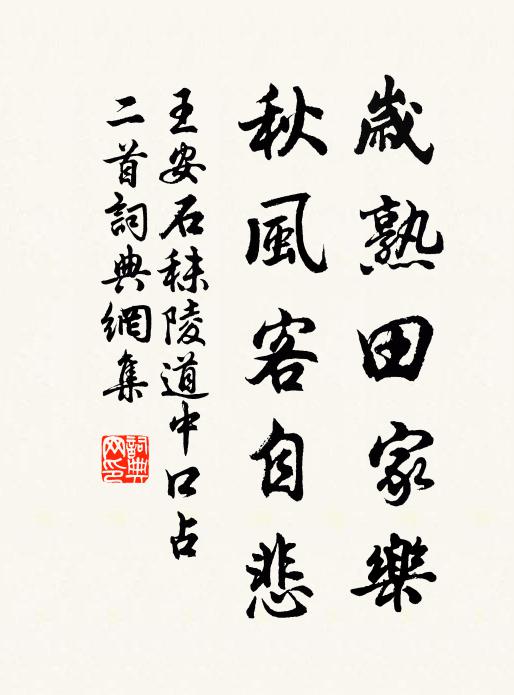 歲熟田家樂
秋風客自悲
王安石秣陵道中口占
二首詞典網集
詞典網印